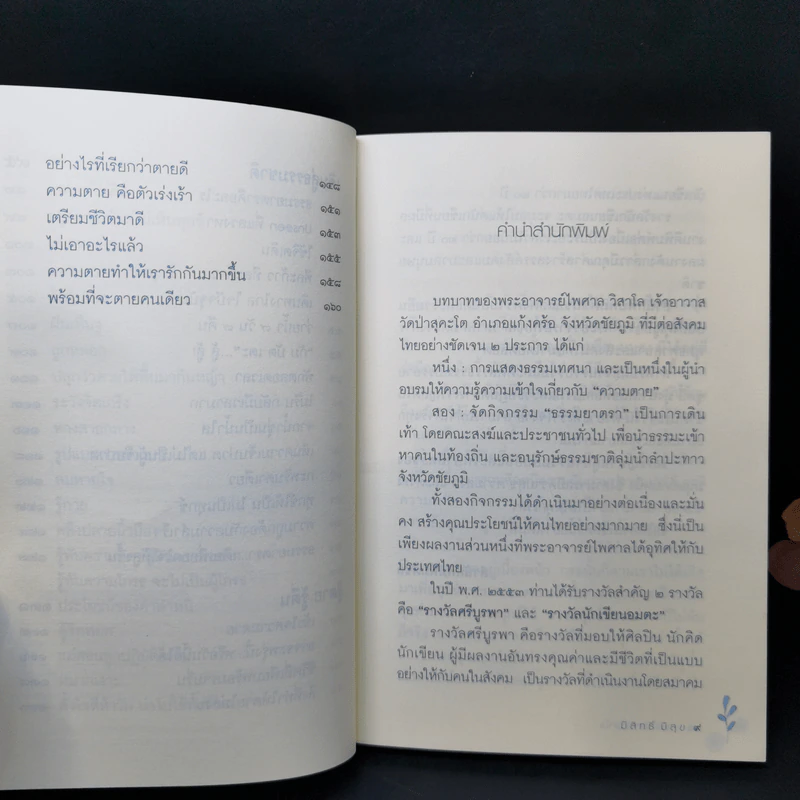 อย่างไรที่เรียกว่าตายดี ๑๔๘
ความตาย คือตัวเร่งเร้า ๑๕๑
เตรียมชีวิตมาดี ๑๕๓
ไม่เอาอะไรแล้ว ๑๕๕
ความตายทำให้เรารักกันมากขึ้น ๑๕๘
พร้อมที่จะตายคนเดียว ๑๖๐
คำนำสำนักพิมพ์
บทบาทของพระอาจารย์ไพศาล วิสาโล เจ้าอาวาส
วัดป่าสุคะโต อำเภอแก้งคร้อ จังหวัดชัยภูมิ ที่มีต่อสังคม
ไทยอย่างชัดเจน ๒ ประการ ได้แก่
หนึ่ง : การแสดงธรรมเทศนา และเป็นหนึ่งในผู้นำ
อบรมให้ความรู้ความเข้าใจเกี่ยวกับ “ความตาย”
สอง : จัดกิจกรรม “ธรรมยาตรา” เป็นการเดิน
เท้า โดยคณะสงฆ์และประชาชนทั่วไป เพื่อนำธรรมะเข้า
หาคนในท้องถิ่น และอนุรักษ์ธรรมชาติลุ่มน้ำลำปะทาว
จังหวัดชัยภูมิ
ทั้งสองกิจกรรมได้ดำเนินมาอย่างต่อเนื่องและมั่น
คง สร้างคุณประโยชน์ให้คนไทยอย่างมากมาย ซึ่งนี่เป็น
เพียงผลงานส่วนหนึ่งที่พระอาจารย์ไพศาลได้อุทิศให้กับ
ประเทศไทย
ในปี พ.ศ. ๒๕๕๓ ท่านได้รับรางวัลสำคัญ ๒ รางวัล
คือ “รางวัลศรีบูรพา” และ “รางวัลนักเขียนอมตะ”
รางวัลศรีบูรพา คือรางวัลที่มอบให้ศิลปิน นักคิด
นักเขียน ผู้มีผลงานอันทรงคุณค่าและมีชีวิตที่เป็นแบบ
อย่างให้กับคนในสังคม เป็นรางวัลที่ดำเนินงานโดยสมาคม
๙